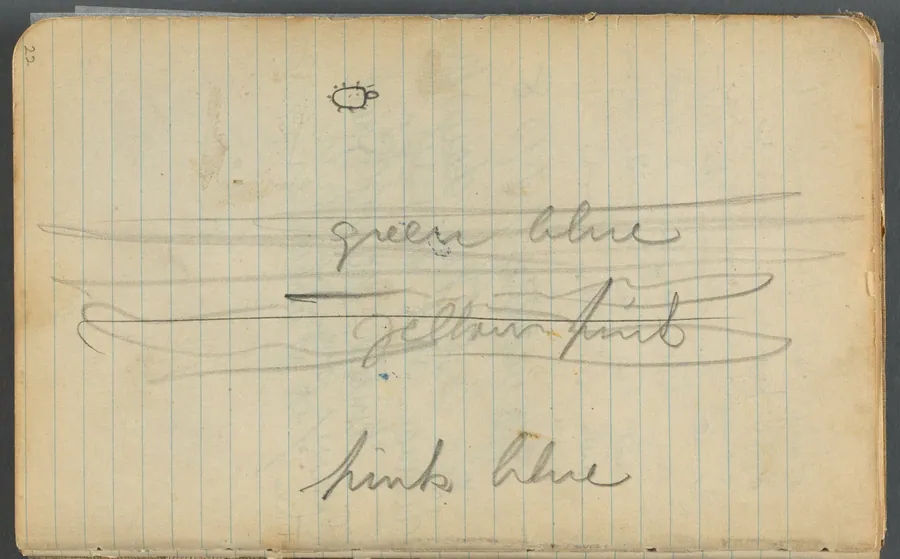 22
green blue
yellow pink
pink blue